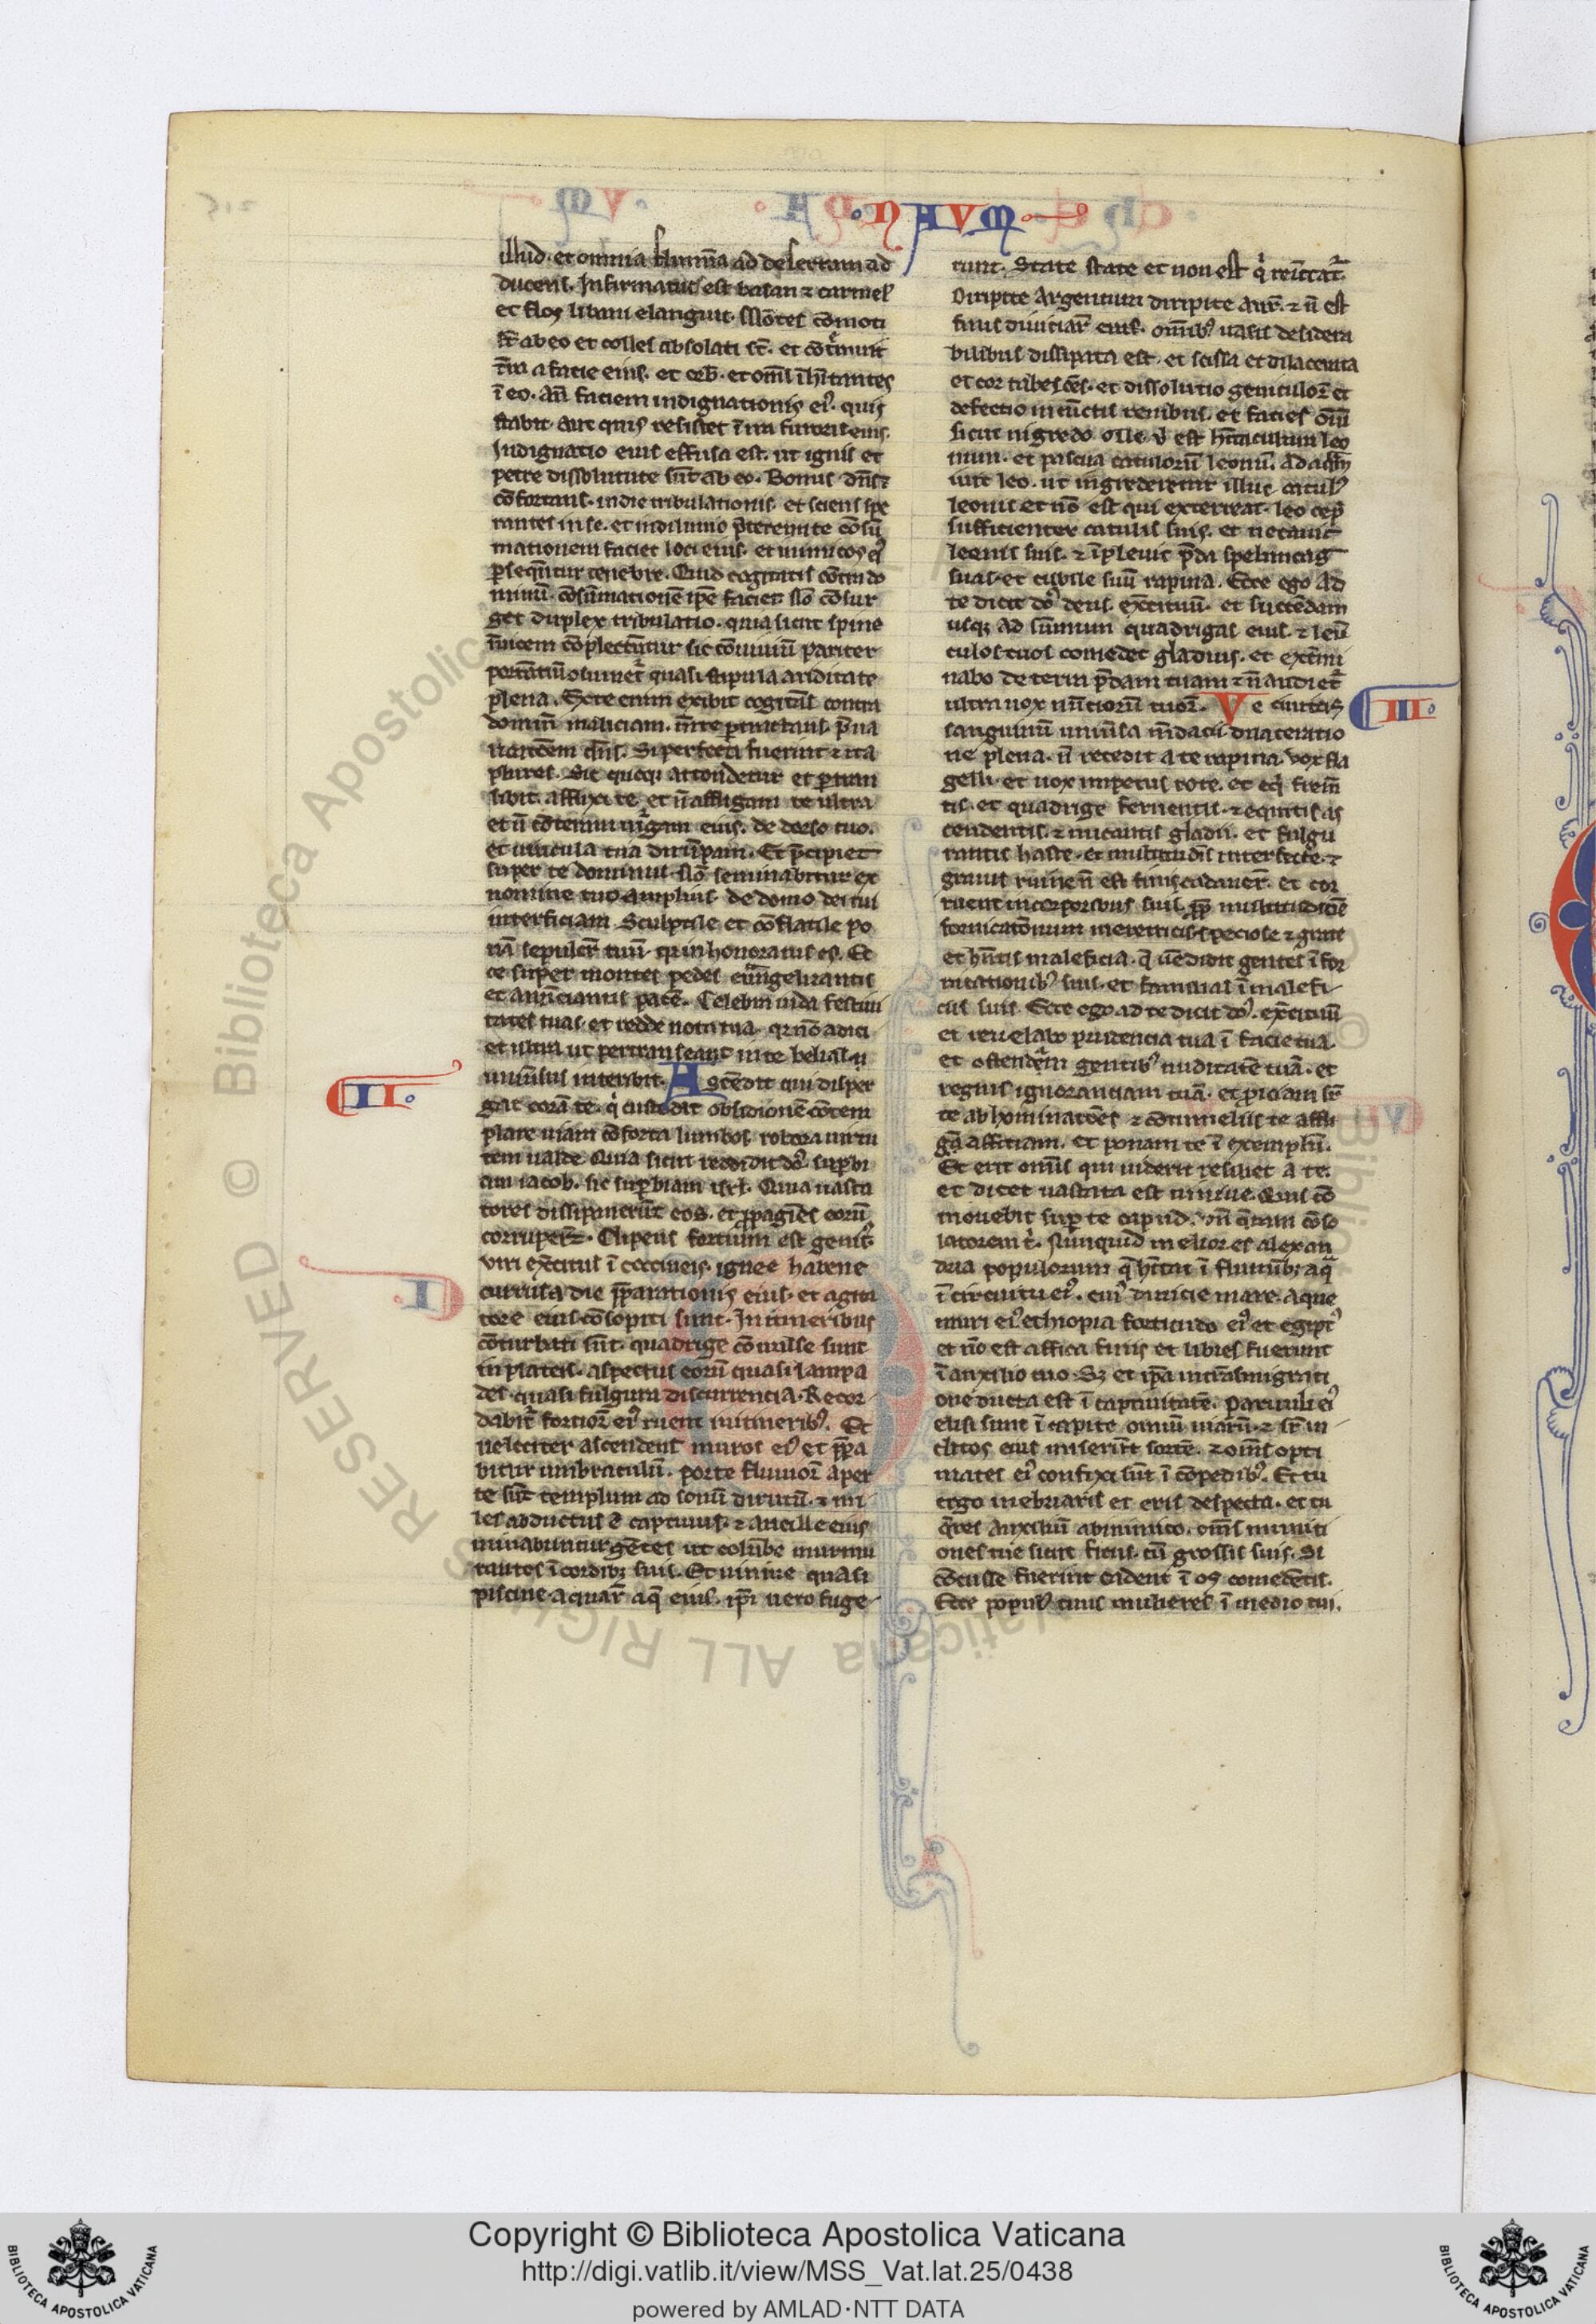 NAVM
illud. et omnia flumĩa ad desertum ad
ducens. Infirmatus est basan ⁊ carmel᷑
et flos libani elanguit. Mõtes cõmoti
st̃ ab eo et colles absolati st̃. et cõtͥmuit
t̃ra a facie eius. et orb᷒. et om̃s ĩhĩtantes
ĩ eo. an̄ faciem indignationis eiꝰ. quis
stabit. aut quis resistet ĩ ira furoris eius.
Indignatio eius effusa est. ut ignis et
petre dissolutute sũt ab eo. Bonus dñs ⁊
cõfortans. in die tribulationis. et sciens spe
rantes in se. et in diluuio p̃tereunte cõsũ
mationem faciet loci eius. et inimicos eiꝰ
ꝑsequẽtur tenebre. Quid cogitatis cõtra do
minũ. cõsũmationẽ ip̃e faciet. Nõ cõsur
get duplex tribulatio. quia sicut spine
ĩuicem cõplectũtur sic cõuiuiũ pariter
potãtiũ ↄsumet᷑ quasi stipula ariditate
plena. Ex te enim exibit cogitãs contra
dominũ maliciam. m̃te ꝑtractans. p̃ua
ricatõem
plures. Sic quoqꝫ attondetur et ꝑtran
sibit. afflixi te. et ñ affligam te ultra
et ñ cõteram uͥgam eius. de dorso tuo.
et uincula tua dirũpam. Et p̃cipiet
super te dominus. Nõ seminabitur ex
nomine tuo amplius. de domo dei tui
interficiam. Sculptile et cõflatile po
nã sepulcr̃ tuũ. qr inhonoratus es. Ec
ce super montes pedes euãngelizantis
et anũciantis pacẽ. Celebra iuda festiui
tates tuas. et redde uota tua. qr nõ adici
et ultra ut pertranseant in te belial. ⁊
uniũsus interibit. Ascẽdit qui disper
gat corã te. qͥ custodit obsidionẽ cõtem
plare uiam cõforta lumbos robora uirtu
tem ualde. Quia sicut reddidit dõs. suꝑbi
am iacob. sic suꝑbiam isrl̃. Quia uasta
tores dissipauer̃t eos. et ꝓpagĩes eorũ
corruper̃t. Clipeus fortium est
II.
Viri ex̃citus ĩ coccineis. ignee habene
currus a die p̃parationis eius. et agita
tore eius cõsopiti sunt. In itineribus
cõturbati sũt. quadrige cõ millse sunt
in plateis. aspectus eorũ quasi lampa
des. quasi fulgura discurrencia. Recor
dabit᷑ fortiorũ eiꝰ ruent in itineribꝰ. Et
ueleciter ascendent muros eiꝰ et p̃pa
bitur umbraculũ. porte fluuiorũ aper
te sũt templum ad solũ dirutũ. ⁊ mi
les adductus ẽ captiuus. ⁊ ancille eius
minabuntur gẽtes ut colũbe murmu
rantes ĩ cordibꝫ suis. Et niniue quasi
piscine aquarũ aq̃ eius. ip̃i uero fuge
runt. State state et non est qͥ reũtat᷑.
Diripite Argentum diripite aur̃. ⁊ ñ est
finis diuiciar̃ eius. om̃ibꝰ uasis desidera
bilibus dissipata est. et scissa et dilacerata
et cor tabesçẽs. et dissolutio geniculor̃ et
defectio in cũctis renibus. et facies om̃iũ
sicut nigredo olle. vͥ est hĩtaculum leo
num. et pascua catulorũ leonũ. Ad quẽ
iuit leo. ut ingrederetur illuc catulꝰ
leonis et nõ est qui exterreat. leo cep̃
sufficienter catulis suis. et necauit
leenis suis. ⁊ ĩpleuit p̃da speluncas
suas. et cubile suũ rapina. Ecce ego ad
te dicit dõs deus. ex̃cituũ. et succẽdam
usqꝫ ad sũmum quadrigas eius. ⁊ leũ
culos tuos comedet gladius. et ext̃mi
nabo de terra p̃dam tuam ⁊ ñ audiet᷑
ultra uox nũtiorũ tuor̃. Ve ciuitas
III.
sanguinũ uniũsa m̃dacii dilaceratio
ne plena. ñ recedit a te rapina. Vox fla
gelli. et uox impetus rote. et eqͥ frem̃
tis. et quadrige feruentis. ⁊ equitis as
cendentis. ⁊ micantis gladii. et fulgu
rantis haste. et multitudĩs interfecte. ⁊
grauis ruine ñ est finis cadauer̃. et cor
ruent in corporibus suis. ꝓp̃ multitudinẽ
fornicatõnum meretricis speciose ⁊ grate
et hñtis maleficia. q̃ uẽdidit gentes ĩ for
nicationibꝰ suis. et familias ĩ malefi
ciis suis. Ecce ego ad te dicit dõs. ex̃cituũ
et reuelabo prudencia tua ĩ facie tua.
et ostendã gentibꝰ nuditatẽ tuã. et
regnis ignorantiam tuã. et ꝓiciam sr̃
te abhominatões ⁊ cõtumeliis te affli
gã affitiam. et ponam te ĩ exemplũ.
Et erit omĩs qui uiderit resiliet a te.
et dicet uastata est niniue. Quis cõ
mouebit suꝑ te capud. vñ q̃ram cõso
latorem tͥ. Nunquid melior es alexan
dria populorum q̃ hĩtat ĩ fluminibꝫ aq̃
ĩ circuitu eiꝰ. cuiꝰ diuicie mare. aque
muri eiꝰ ethiopia fortitudo eiꝰ et egiptꝰ
et nõ est affica finis et libies fuerunt
ĩ auxilio tuo. Sꝫ et ip̃a in trãsmigrati
one ducta est ĩ captiuitatẽ. paruuli eiꝰ
elisi sunt ĩ capite omniũ uiarũ. ⁊ sr̃ in
clitos eius miser̃t sortẽ. ⁊ om̃s opti
mates eiꝰ confixi sũt ĩ cõpedibꝰ. Et tu
ergo inebriaris et eris despecta. et tu
q̃res auxiliũ ab inimico. om̃s muniti
ones tue sicut ficus. cũ grossis suis. Si
cõcusse fuerint cadent ĩ os comedẽtis.
Ecce popl̃ꝰ tuus mulieres ĩ medio tui.
© Biblioteca Apostolica Vaticana ALL RIGHTS RESERVED
Copyright © Biblioteca Apostolica Vaticana
http://digi.vatlib.it/view/MSS_Vat.lat.25/0438
powered by AMLAD·NTT DATA
BIBLIOTECA APOSTOLICA VATICANA
BIBLIOTECA APOSTOLICA VATICANA